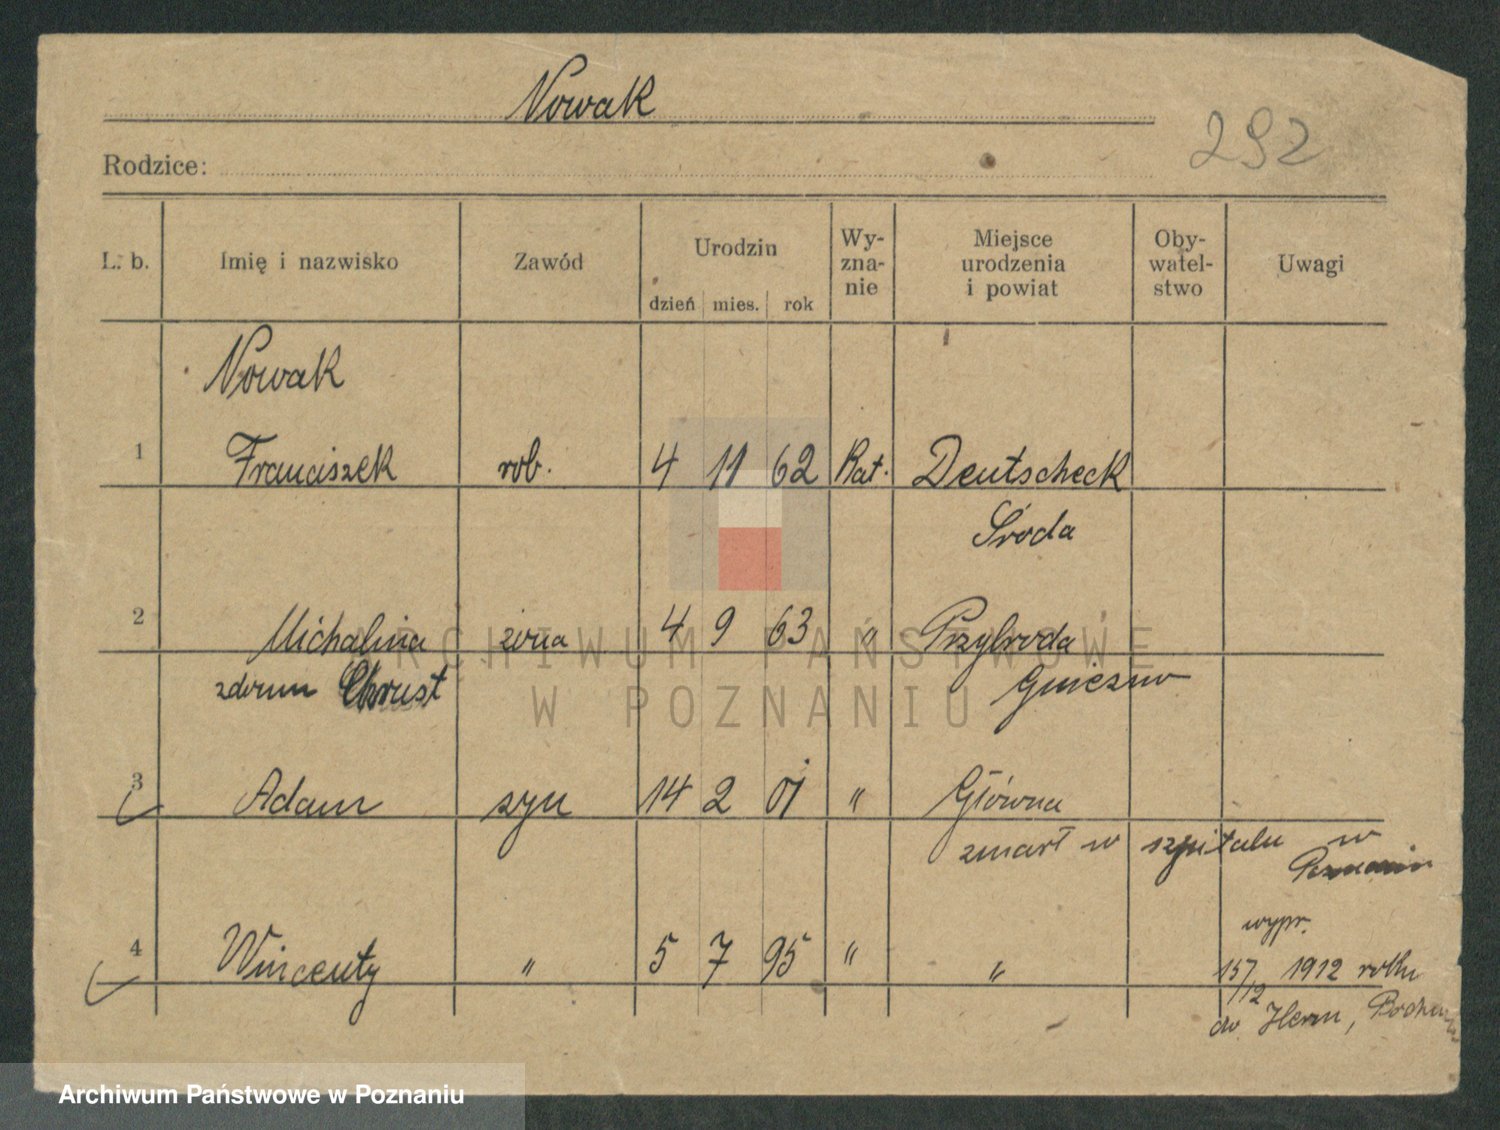 Nowak
292
Rodzice:
L. b. Imię i nazwisko Zawód Urodzin dzień mies. rok Wy-zna-nie Miejsce urodzenia i powiat Oby-watel-stwo Uwagi
Nowak
1 Franciszek rob. 4 11 62 Kat. Deutscheck
Środa
2 Michalina żona 4 9 63 " Przybroda
Gniezno
zdomu Chrust
3 Adam syn 14 2 01 " Główna
zmarł w szpitalu w
Poznaniu
wypr.
4 Wincenty " 5 7 95 " " 15/12 1912 roku
do Hern, Bochum
ARCHIWUM PAŃSTWOWE
W POZNANIU
Archiwum Państwowe w Poznaniu